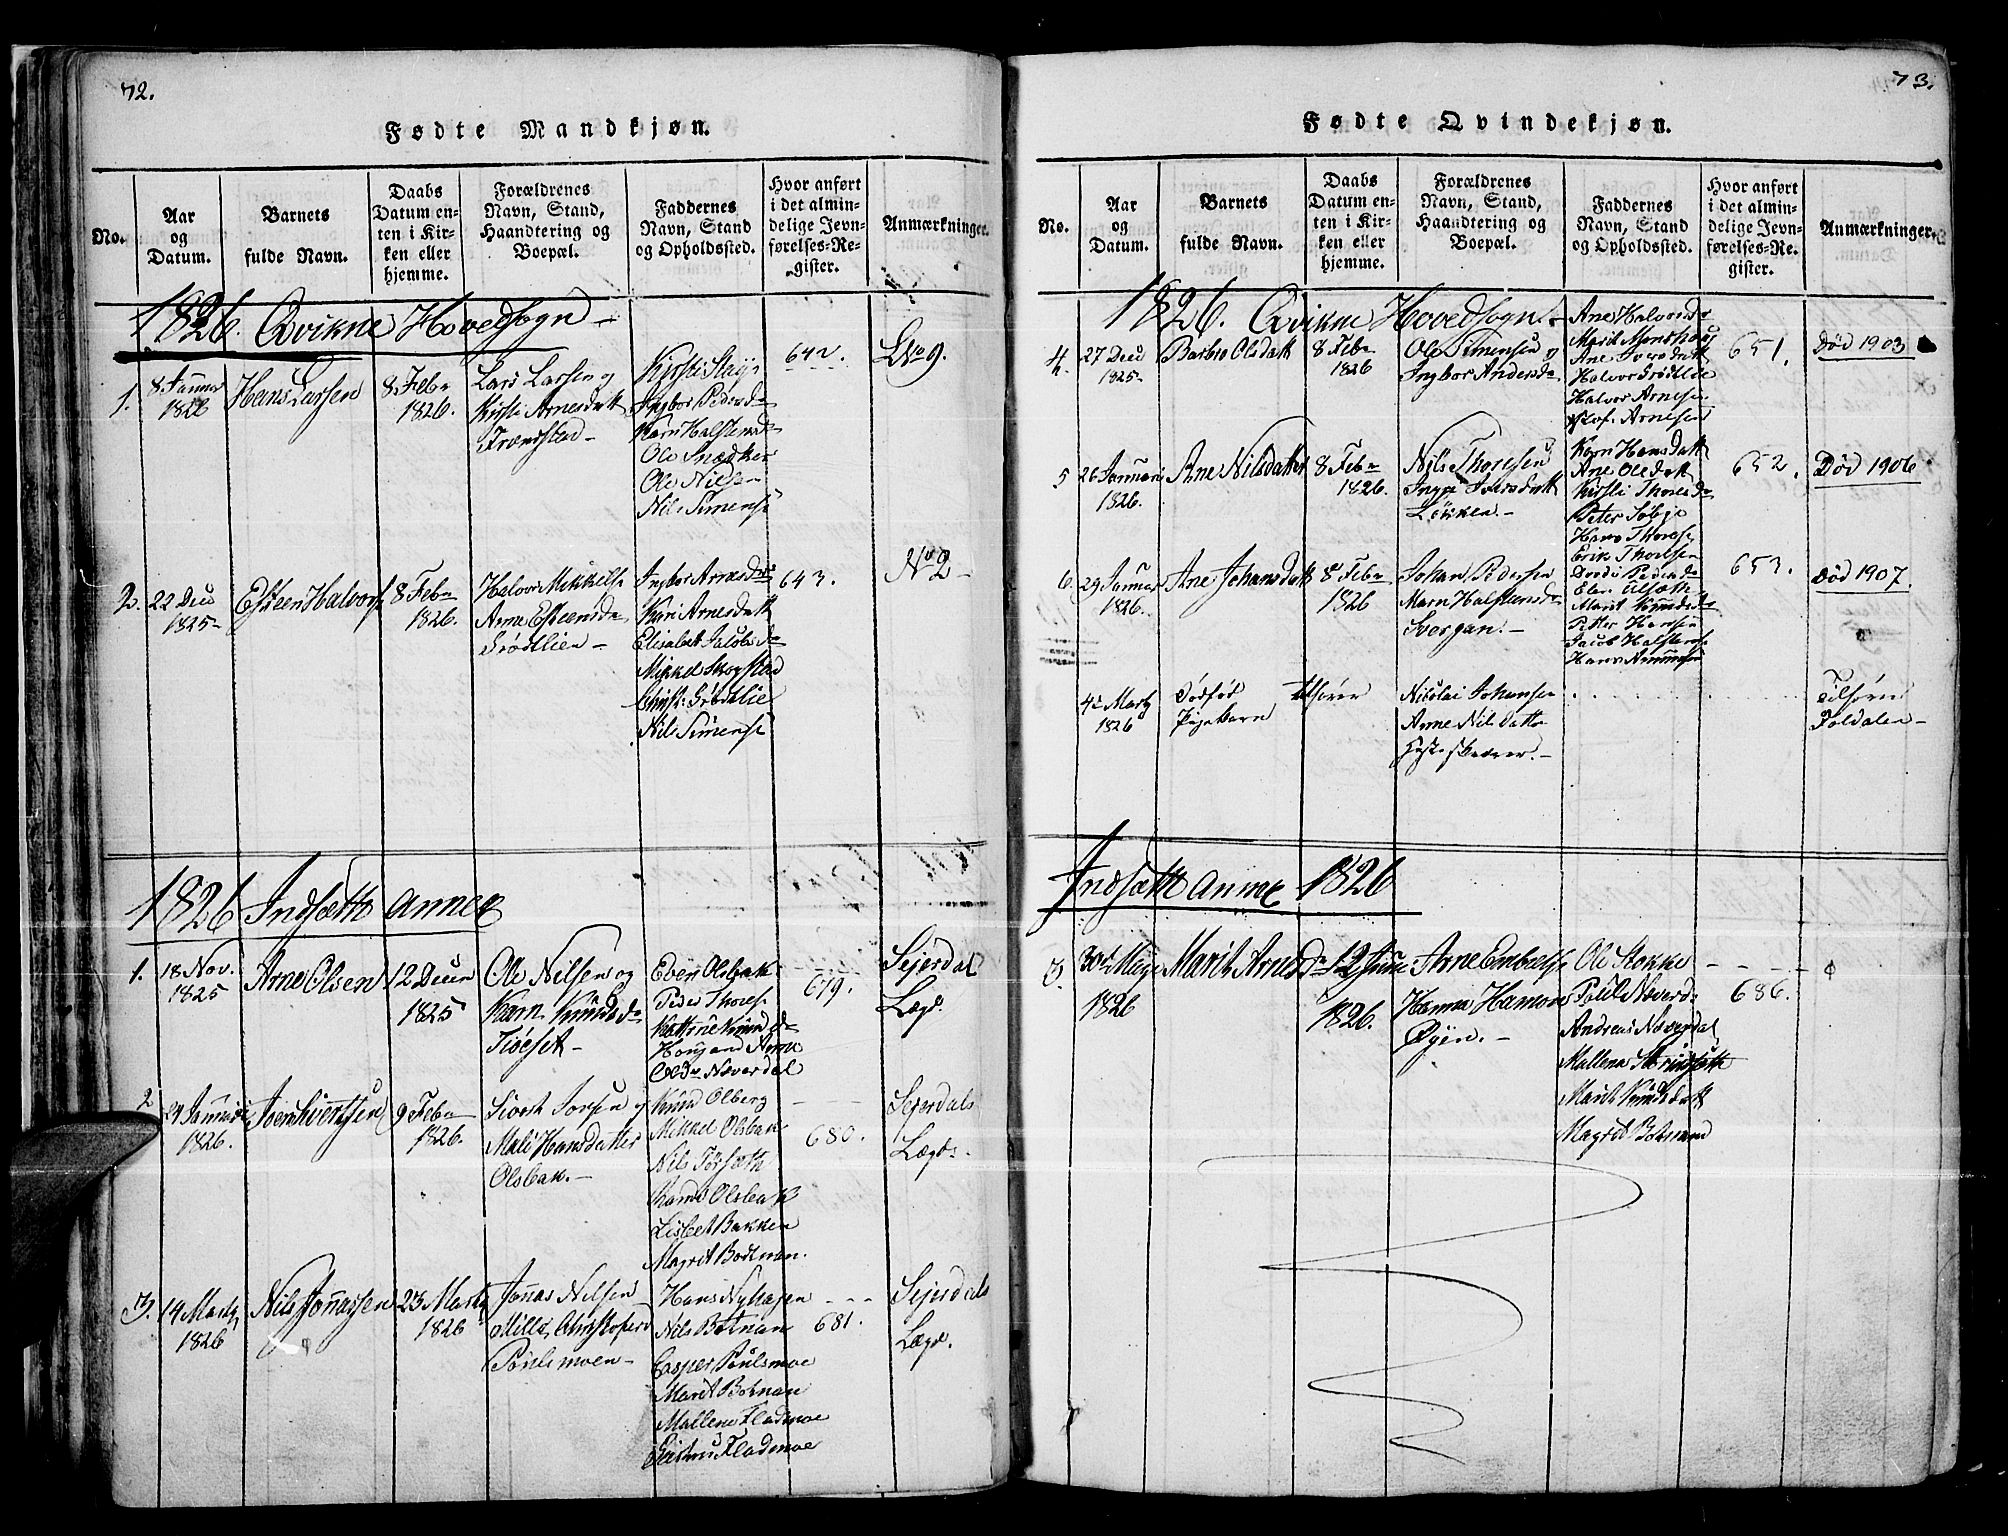 72.
Fødte Mandkjøn.
No.
Aar og Datum.
Barnets fulde Navn.
Daabs Datum enten i Kirken eller hjemme.
Forældrenes Navn, Stand, Haandtering og Boepæl.
Faddernes Navn, Stand og Opholdssted.
Hvor anført i det almindelige Jevnførelses-Register.
Anmærkninger.
1826. Qvikne Hovedsogn
1.
8 Januar
1826
Hans Larsen
8 Febr
1826.
Lars Larsen og
Kirsti Arnesdatt
Frændstad
Ingbor Pedersd
Karn Halstensd
Ole Snedker
Ole Nils
Nils Simens
642.
No 9.
2.
22 Dec
1825
Esteen Halvors
8 Febr
1826.
Halvor Mikkels
Arne Esteensd
Grødtlien
Ingbor Arnesd
Kari Arnesdatt
Elisabet Jacobsd
Mikkel Skogstad
Christ: Grødtlie
Nils Simens
643.
No 2
1826 Indsætt annex
1.
18 Nov.
1825
Arne Olsen
12 Decem
1825
Ole Nilsen og
Karn Knudsd
Tiøeset
Even Olsbak
Peder Thores
Kattrine Knudsd
Arne
Olsdr Næverdal
679.
Sejerdal
Lægd.
2
29 Januari
1826.
Joen Sivertsen
9 Febr
1826.
Siort Joersen og
Mali Hansdatter
Olsbak.
Knud Olberg
Mikkel Olsbak
Nils Torsæth
Olsbak
Lisbet Bakken
Magrit Bodtnan.
680.
Sejerdals
Lægd.
3.
14 Marty
1826
Nils Jonassen
23 Marty
1826
Jonas Nilsen
Mille Christophers
Poulsmoen
Hans Nyhagen
Nils Botnan
Casper Poulsmoe
Marit Botnan
Mallene Fladmoe
Fladmoe
681.
Sejerdals
Lægd.
73.
Fødte Qvindekjøn.
No.
Aar og Datum.
Barnets fulde Navn.
Daabs Datum enten i Kirken eller hjemme.
Forældrenes Navn, Stand, Haandtering og Boepæl.
Faddernes Navn, Stand og Opholdssted.
Hvor anført i det almindelige Jevnførelses-Register.
Anmærkninger.
1826. Qvikne Hovedsogn.
4.
27 Dec
1825
Barbro Olsdatt
8 Feb
1826
Ole Simensen og
Ingbor Andersd
Ane Halvorsd
Marit
Ane
Halvor Grødtlie
Halvor Arnesen
Arnesen
651.
Død 1903
5
26 Januari
1826.
Ane Nilsdatter
8 Feb
1826.
Nils Thoresen
Inge Iversdatt
Løkken.
Karn Hansdatt
Ane Olsdatt
Kirsti Thoresd
Peter
Hans Thores
Erik Thoresen
652.
Død 1906
6.
29 Januar
1826.
Ane Johansdatt
8 Feb
1826
Johan Pedersen
Marn Halstensd
Svergan.
Dordi Pedersd
Marit Knudsd
Petter Hansen
Jacob Halstens
Hans Amundsen
653.
Død 1907.
4 Marty
1826
Dødfød
Pigebarn
tilføres
Nikolai Johansen
Arne Nilsdatter
Tilføres
Foldalen
Indsætt annex 1826
3.
30d Maye
1826
Marit Arnesd
12 Juni
1826.
Arne Embrets
Hanna Hansen
Øyen.
Ole Stokke
Polle Næverd
Andreas Næverdal
Mallena Stringsætt
Marit Knudsdatt
Magrit Botnand
686.